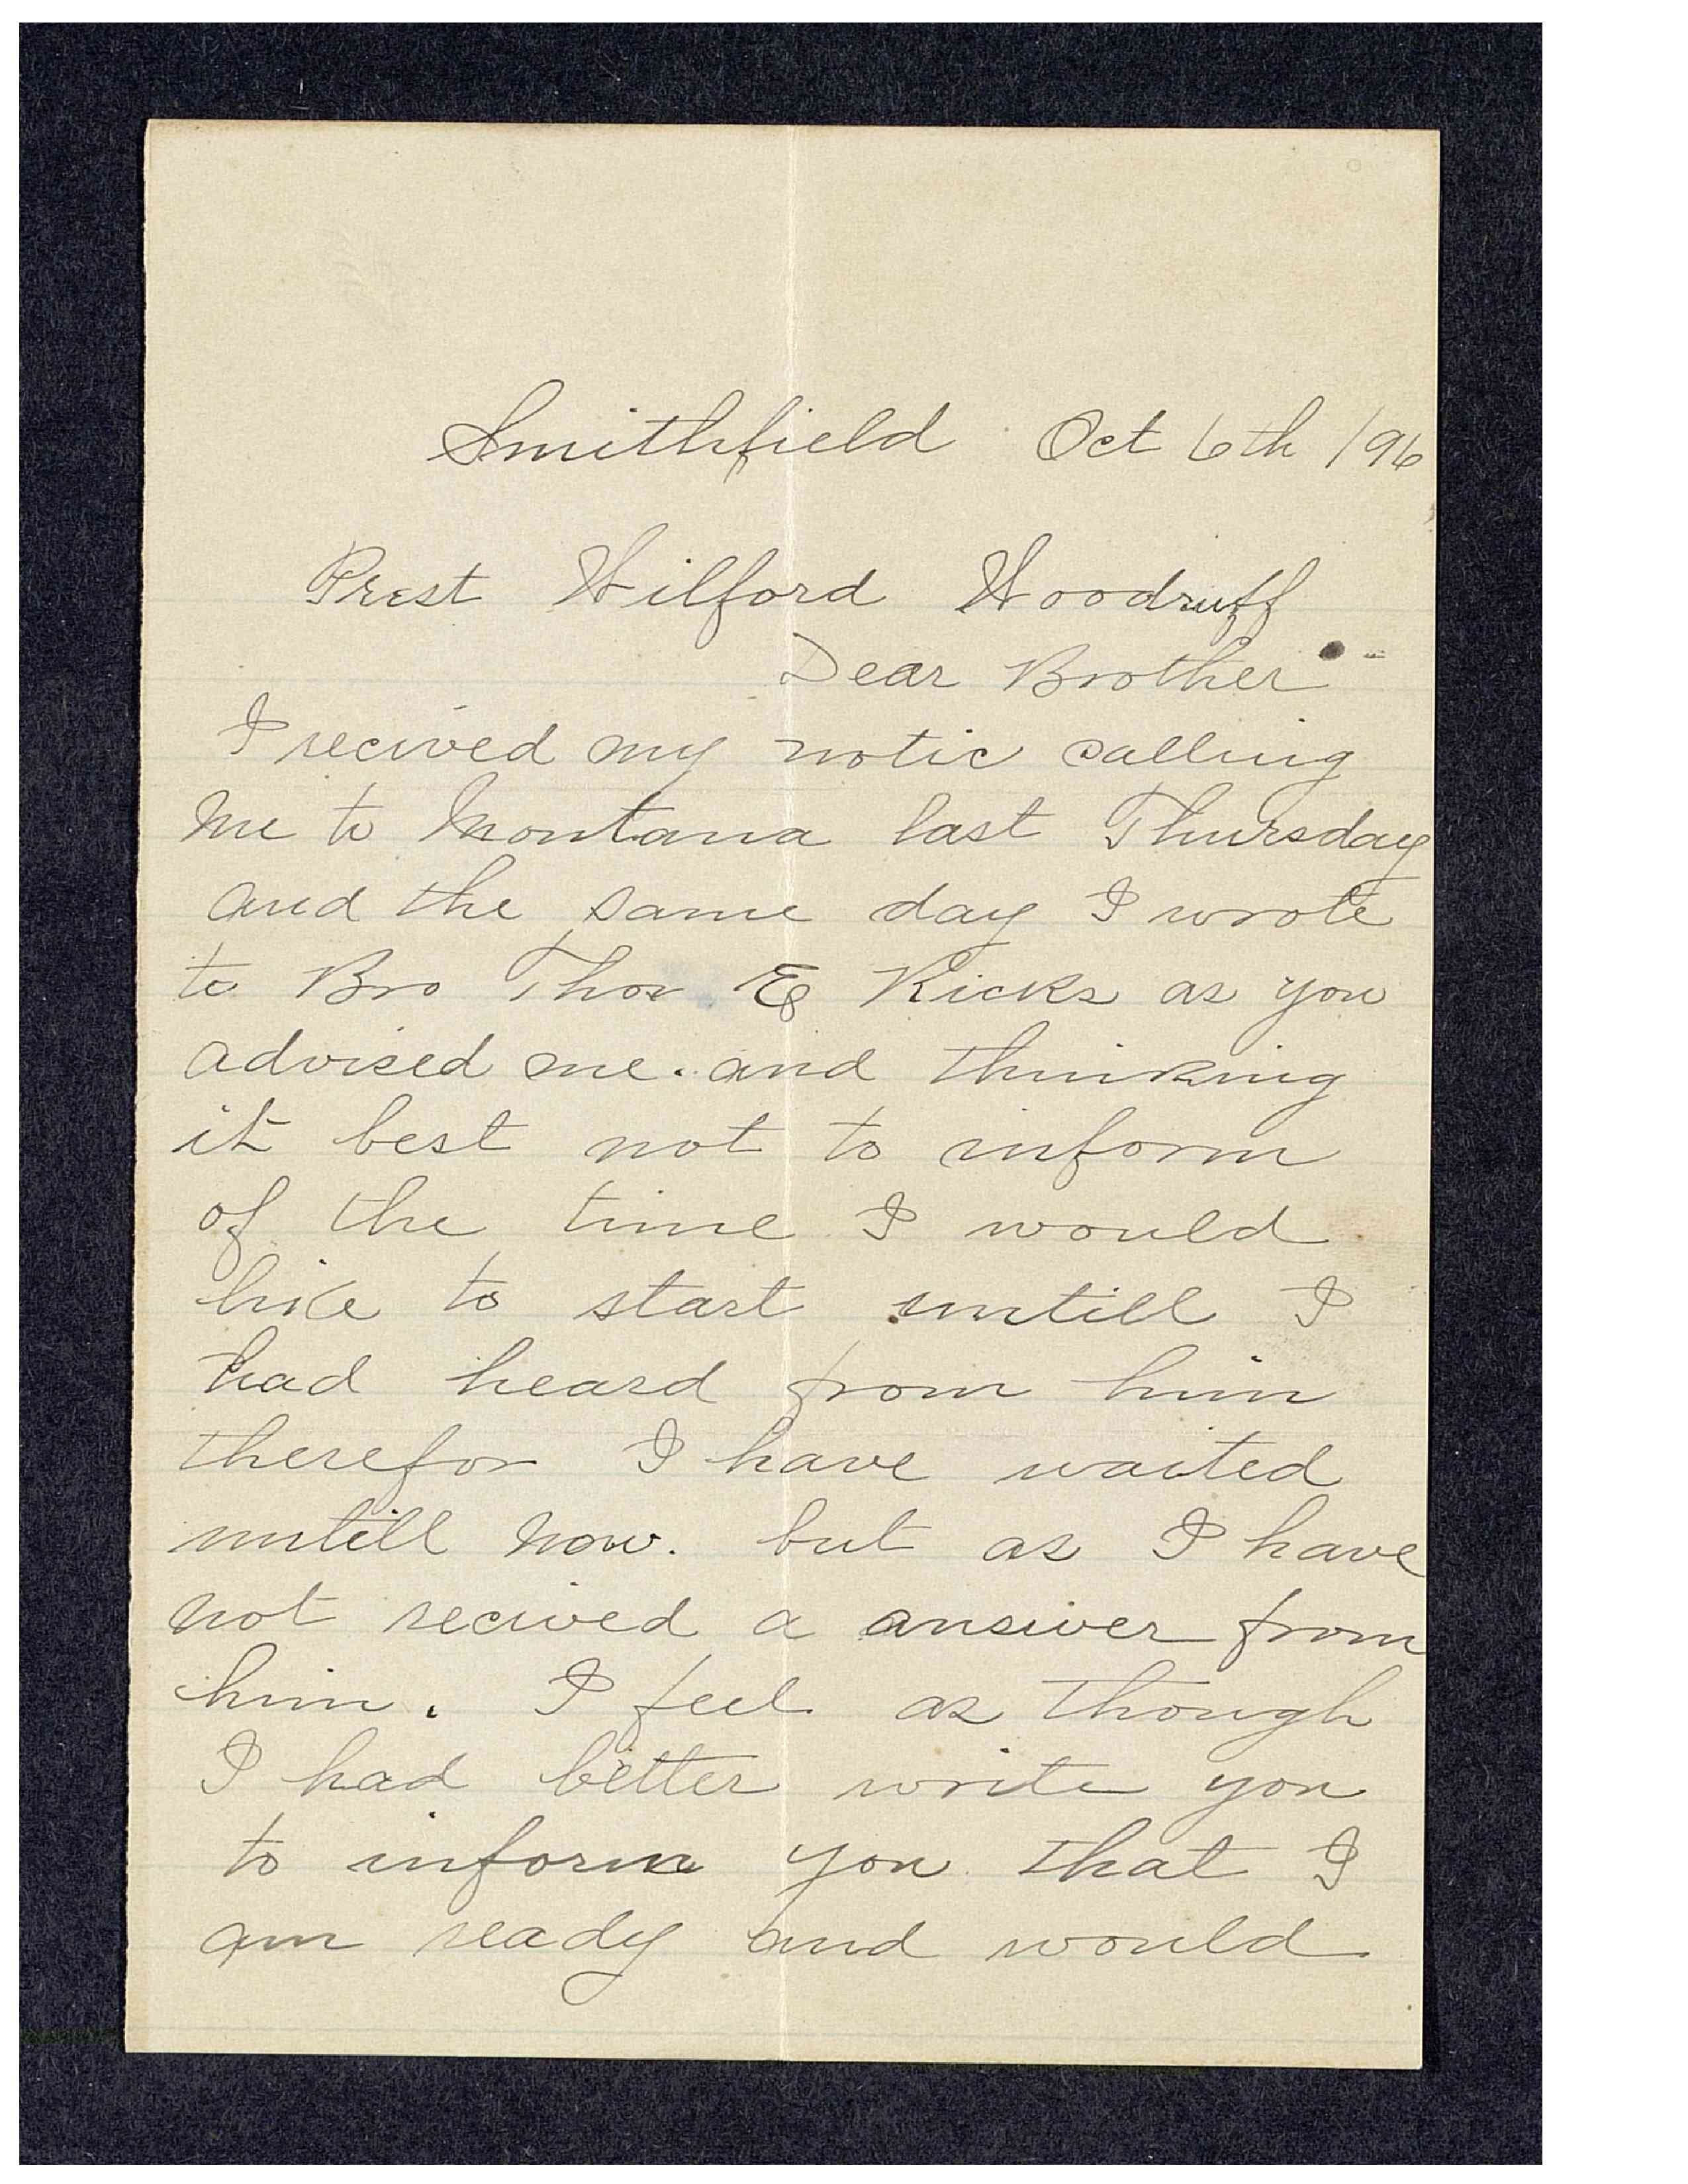 Smithfield Oct 6th /96
Prest Wilford Woodruff
Dear Brother
I recived my notic calling
me to Montana last Thursday
and the same day I wrote
to Bro Thos E Ricks as you
advised me. and thinking
it best not to inform
of the time I would
like to start untill I
had heard from him
therefor I have waited
untill now. but as I have
not recived a answer from
him. I feel as though
I had better write you
to inform you that I
am ready and would